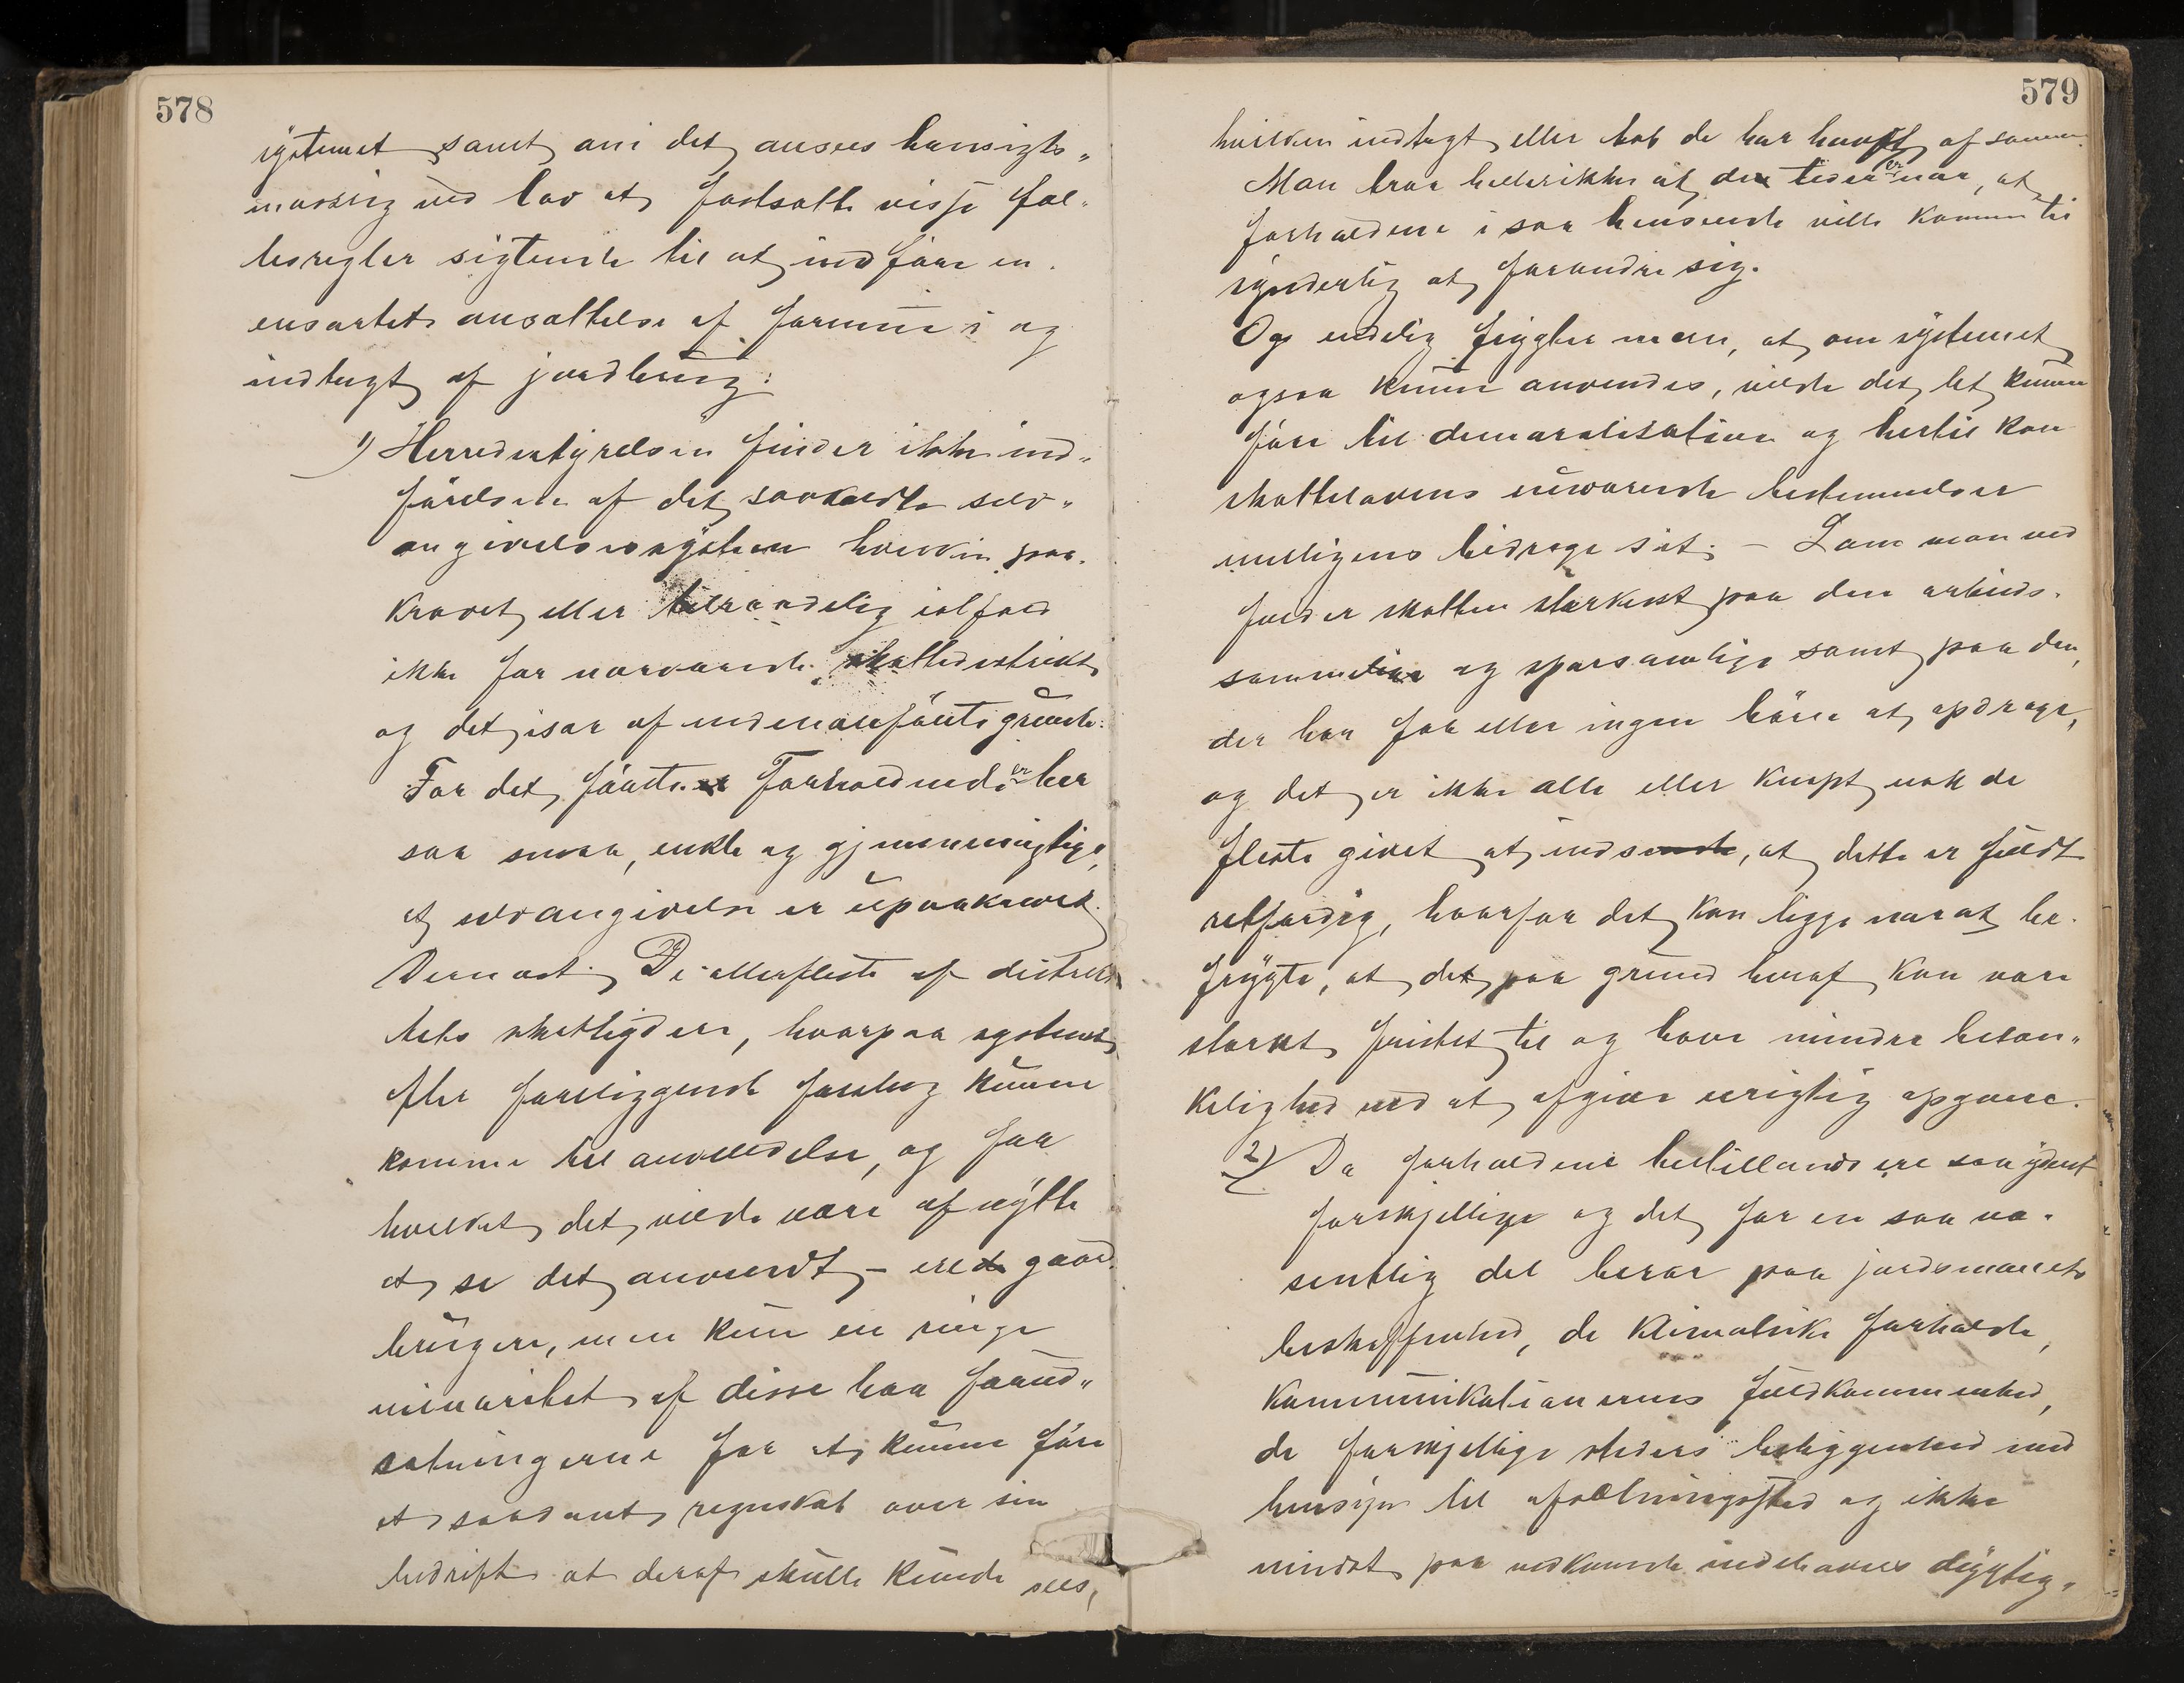 578
systemet samt om det ansees hensigts„
mæssig ved lov at fastsætte visse fæl„
lesregler sigtende til at indføre en
ensartet ansættelse af formue i og
indtægt af jordbrug:
1) Herredsstyrelsen finder ikke ind„
førelsen af det saakaldte selv„
angivelsessystem hverken paa„
krævet eller tilraadelig ialfald
ikke for nærværende skattedistrikt
og det især af nedenanførte grunde:
For det første Forholdene er her
saa smaa, enkle og gjennemsigtige,
at selvangivelse er upaakrævet.
Dernæst: De allerfleste af distrik„
tets skatteydere, hvorpaa systemet
efter foreliggende forslag kunne
komme til anvendelse, og for
hvilket det vilde være af nytte
at se det anvendt – ere gaard„
brugere, men kun en ringe
minoritet af disse har forud„
sætningerne for at kunne føre
et saadant regnskab over sin
bedrift at deraf skulle kunde sees,
579
hvilken indtægt eller tab de har havt af samme.
Man tror hellerikke at tiden er nær, at
forholdene i saa henseende ville komme til
synderlig at forandre sig.
Og endelig frygter man, at om systemet
ogsaa kunne anvendes, vilde det let kunne
føre til demoralisation og hertil kan
skattelovens nuværende bestemmelser
muligens bidrage sit. – Som man ved
falder skatten stærkest paa den arbeids„
somme og sparsomlige samt paa den,
der har faa eller ingen børn at opdrage,
og det er ikke alle eller knapt nok de
fleste givet at indse, at dette er fuldt
retfærdig, hvorfor det kan ligge nær at be„
frygte, at det paa grund heraf kan være
stærkt fristet til og have mindre betæn„
kelighed ved at afgive urigtig opgave.
2) Da forholdene hertillands ere saa yderst
forskjellige og det for en saa væ„
sentlig del beror paa jordsmonnets
beskaffenhed, de klimatiske forholde,
kommunikationernes fuldkommenhed,
de forskjellige steders beliggenhed med
hensyn til afsætningssted og ikke
mindst paa vedkommende indehavers dygtig„